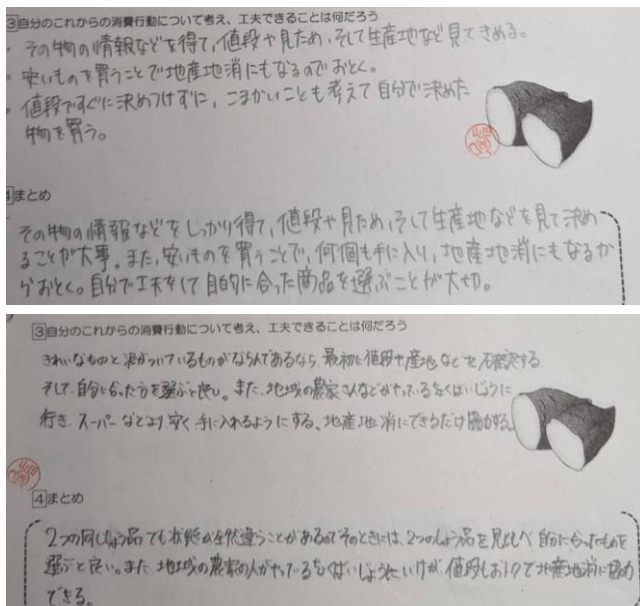 3自分のこれからの消費行動について考え、工夫できることは何だろう
・その物の情報などを得て、値段や見ため、そして生産地など見てきめる。
・安いものを買うことで地産地消にもなるのでおとく。
・値段ですぐに決めつけずに、こまかいことも考えて自分で決めた
物を買う。
4まとめ
その物の情報などをしっかり得て、値段や見ため、そして生産地などを見て決め
ることが大事。また、安いものを買うことで、何個も手に入り、地産地消にもなるか
らおとく。自分で工夫をして目的に合った商品を選ぶことが大切。
3自分のこれからの消費行動について考え、工夫できることは何だろう
きれいなものと決がついているものがならんであるなら、最初に値段や産地などを確認する
そして、自分に合った方を選ぶと良い。また、地域の農家さんなどがやっているちょくばいじょうに
行き、スーパーなどより安く手に入れるようにする。地産地消にできるだけ協力する。
4まとめ
2つの同じしょう品でも状態が全然違うことがあるのでそのときには、2つのしょう品を見比べ自分に合ったものを
選ぶと良い。また、地域の農家の人がやっているちょくばいじょうに
値段もおトクで地産地消に協力
できる。